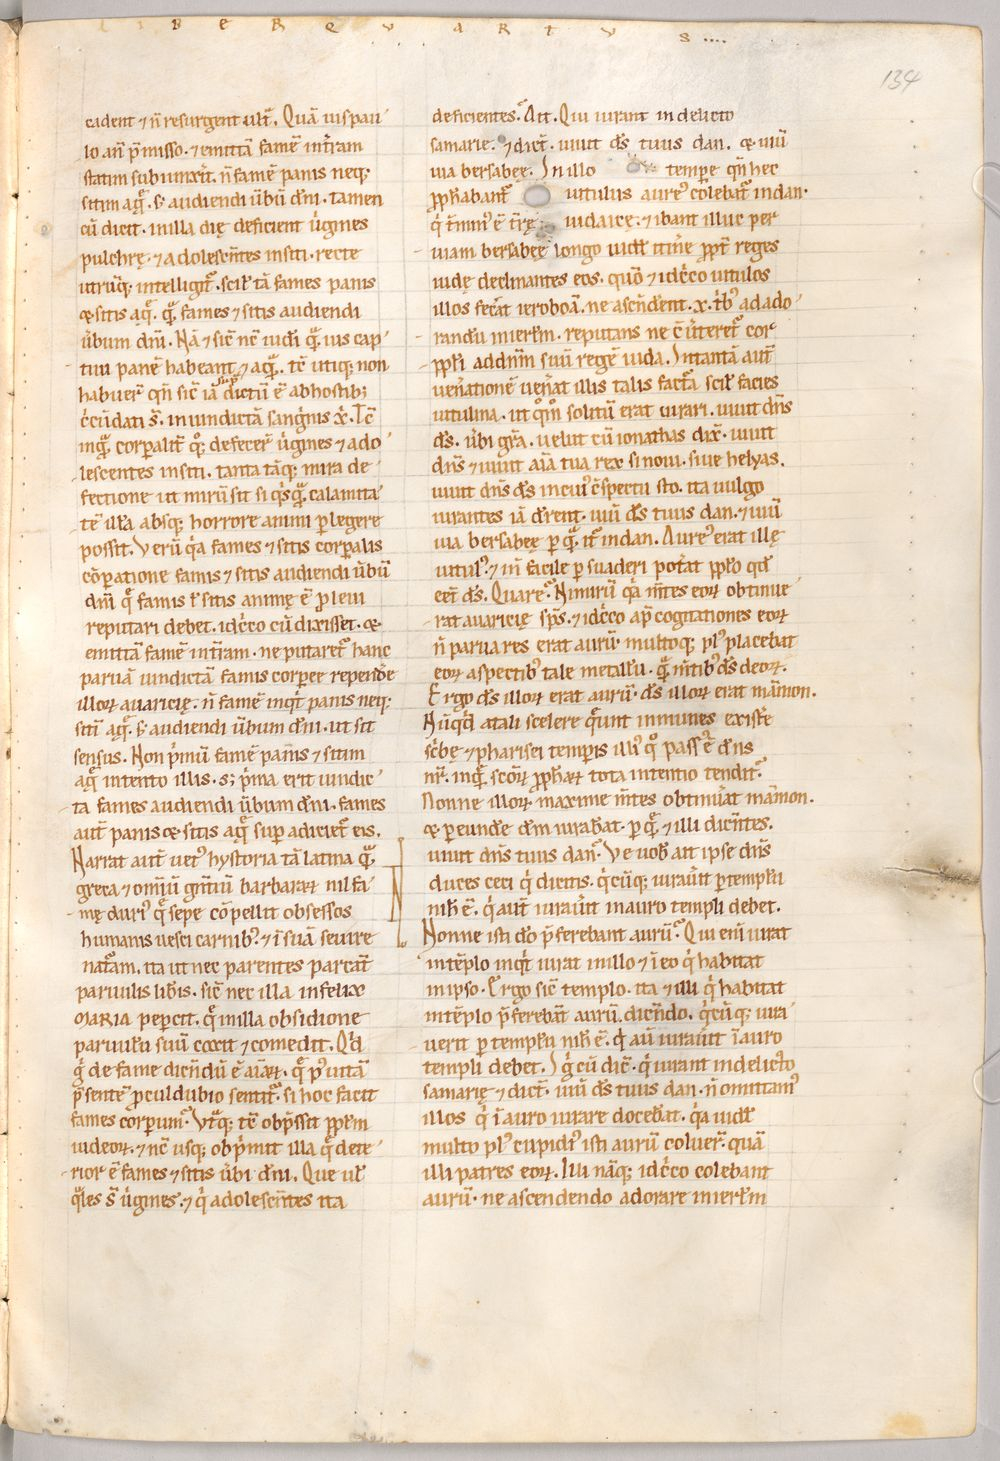 L I B E R Q V A R T V S ....
134
cadent ⁊ n̄ resurgent ult᷑a. Quā uispau
lo an̄ p̄misso. ⁊ emittā famē int᷑ram
statim subiunxit. n̄ famē panis neq;
sitim aq̄. s; audiendi ūbū dn̄i. tamen
cū dicit. in illa die deficient u̓gines
pulchrę. ⁊ adolescn̄tes insiti. recte
utrūq; intelligit᷑. scil' tā fames panis
& sitis aq̄. q̄ fames ⁊ sitis audiendi
ūbum dn̄i. Nā ⁊ sic̄ nc̄ iudi q̄uis cap
tiui panē habeant ⁊ aq̄. tc̄ utiq; non
habuer̄ qn̄ sic̄ iā sup̄ dictū ē ab hostib;
c̓cūdati s̄. in uindictā sangīnis x̄. Tc̄
inq̄ corꝑalit᷑ q; defecer̄ u̓gines ⁊ ado
lescentes insiti. tanta tāq; mira de
fectione ut mirū sit si q̓sq̄ calamita
tē illā absq; horrore animi ꝑlegere
possit. Verū q̓a fames ⁊ sitis corꝑalis
cōꝑatione famis ⁊ sitis audiendi ūbū
dn̄i q̄ famis ł sitis animę ē ꝓ leui
reputari debet. idc̓co cū dixisset. &
emittā famē int᷑ram. ne putaret᷑ hanc
paruā uindictā famis corꝑeę rependę
illoꝝ auaricię. n̄ famē inq̓t panis neq;
sitī aq̄. s; audiendi ūbum dn̄i. ut sit
sensus. Non p̓mū famē panis ⁊ sitim
aq̄ intento illis. s; p̓ma erit uindic
ta fames audiendi ūbum dn̄i. fames
aut̄ panis & sitis aq̄ suꝑadiciet᷑ eis.
Narrat aut̄ uet᷒ hystoria tā latina q̄
greca ⁊ om̄iū gn̄tiū barbaraꝝ nil fa
mę duri᷒ q̄ sepe cōpellit obsessos
humanis uesci carnib᷒. ⁊ ī suā seuire
nat᷑am. ita ut nec parentes parcāt
paruulis lib̄is. sic̄ nec illa infelix
MARIA peꝑcit. q̄ in illa obsidione
paruulū suū coxit ⁊ comedit. Qd̄
g̓ de fame dicn̄dū ē aīaꝝ. q̄ p᷒ uitā
p̄sentē ꝓculdubio sentit᷑. si hoc facit
fames corꝑum. Vt᷑q; tc̄ obp̄ssit ppl̄m
iudeoꝝ. ⁊ nc̄ usq; obp̓mit illa q̄ dete
rior ē fames ⁊ sitis ūbi dn̄i. Que ul'
q̄les s̄ u̓gines. ⁊ q̓ adolescn̄tes ita
deficientes. Ait. Qui iurant in delicto
samarie. ⁊ dict̄. uiuit ds̄ tuus dan. & uiū
uia bersabeę. In illo tempore qn̄ hec
ꝓph̄abant᷑ uitulus aure᷒ colebat᷑ in dan.
q̓ t̄min᷒ ē t̄rę iudaicę. ⁊ ibant illuc per
uiam bersabeę longo uidl' itin̄e ꝓpt̄ reges
iudę declinantes eos. quō ⁊ idc̓co uitulos
illos fec̄at ieroboā. ne ascn̄dent. x. t̓b᷒ ad ado
randū in ierl̄m. reputans ne c̄u̓teret᷑ cor
ppl̄i ad dn̄m suū regē iuda. In tantā aut̄
uen̄ationē uen̄at illis talis fact᷑a scil' facies
uitulina. ut qm̄ solitū erat iurari. uiuit dn̄s
ds̄. ūbi gr̄a. uelut cū ionathas dix̄. uiuit
dn̄s ⁊ uiuit aīa tua rex si noui. siue helyas.
uiuit dn̄s ds̄ in cui᷒ c̄spectu sto. ita uulgo
iurantes iā dr̄ent. uiū ds̄ tuus dan. ⁊ uiū
uia bersabeę ꝑ q̄ it᷑ in dan. Aure᷒ erat ille
uitul᷒. ⁊ in facile ꝑsuaderi pot̄at pplō qd̄
eēt ds̄. Quare. Nimirū q̓a m̄tes eoꝝ obtinue
rat auaricię sps̄. ⁊ idc̓co ap̄ cogitationes eoꝝ
n̄ parua res erat aurū. multoq; pl᷒ placebat
eoꝝ aspectib᷒ tale metallū. q̄ m̄tib᷒ ds̄ deoꝝ.
Ergo ds̄ illoꝝ erat aurū. ds̄ illoꝝ erat māmon.
Nūqd̄ a tali scelere q̄unt inmunes existe
sc̓bę ⁊ pharisei temꝑis illi᷒ q̊ pass᷒ ē dn̄s
nr̄. in q̄ sc̄oꝝ ꝓph̄aꝝ tota intentio tendit᷑.
Nonne illoꝝ maxime m̄tes obtinuāt māmon.
& ꝑ eundē dm̄ iurab̄at. ꝑ q̄ ⁊ illi dicn̄tes.
uiuit dn̄s tuus dan. Ve uob̄ ait ipse dn̄s
duces ceci q̓ dicitis. q̓cūq; iurau̓it ꝑ templū
nih̄ ē. q̓ aut̄ iurau̓it in auro templi debet.
Nonne isti dō p̄ferebant aurū. Qui eni iurat
in tēplo inq̓t iurat in illo ⁊ ī eo q̓ habitat
in ipso. Ergo sic̄ templo. ita ⁊ illi q̓ habitat
in tēplo p̄ferebāt aurū. dicn̄do. q̓cūq; iura
uerit ꝑ templū nih̄ ē. q̓ aū iurau̓it ī auro
templi debet. Ig̓ cū dic̄. q̓ iurant in delicto
samarię ⁊ dict̄. uiū ds̄ tuus dan. n̄ omittam᷒
illos q̓ ī auro iurare docebāt. q̓a uidl'
multo pl᷒ cupidi᷒ isti aurū coluer̄. quā
illi patres eoꝝ. Illi nāq; idc̓co colebant
aurū. ne ascendendo adorare in ierl̄m